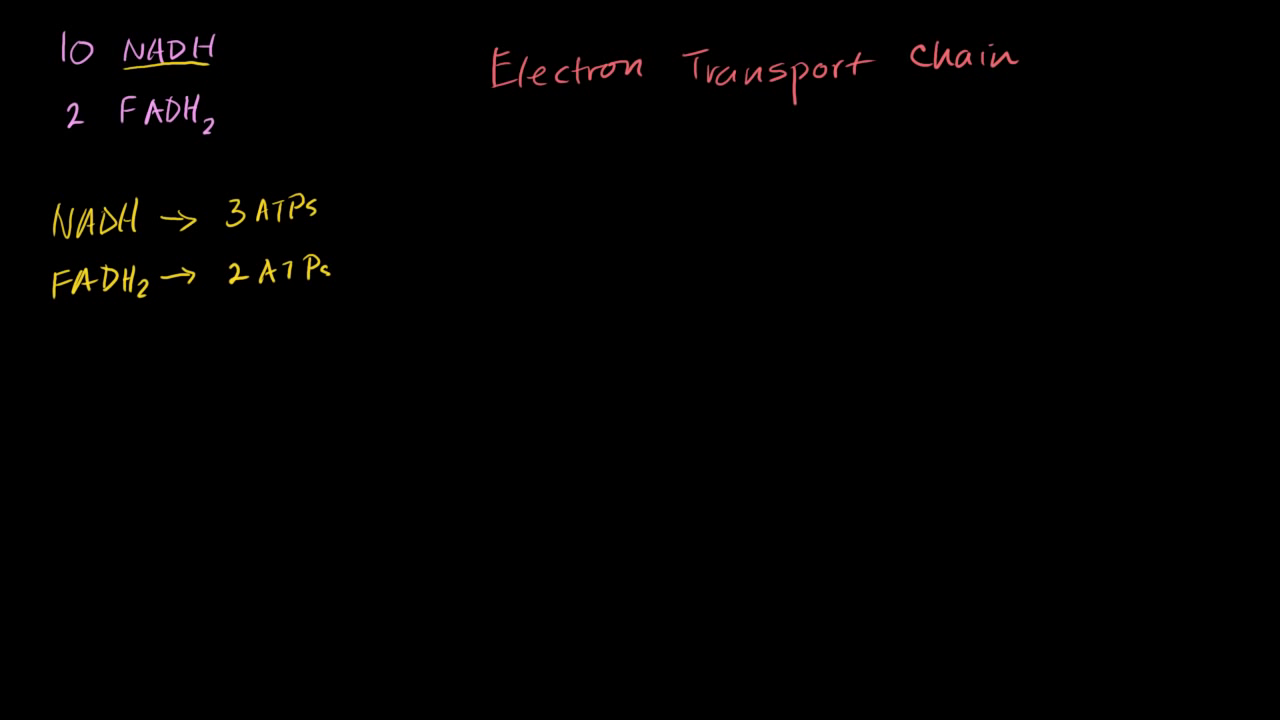 10 NADH
2 FADH₂
Electron Transport Chain
NADH → 3 ATPs
FADH₂ → 2 ATPs